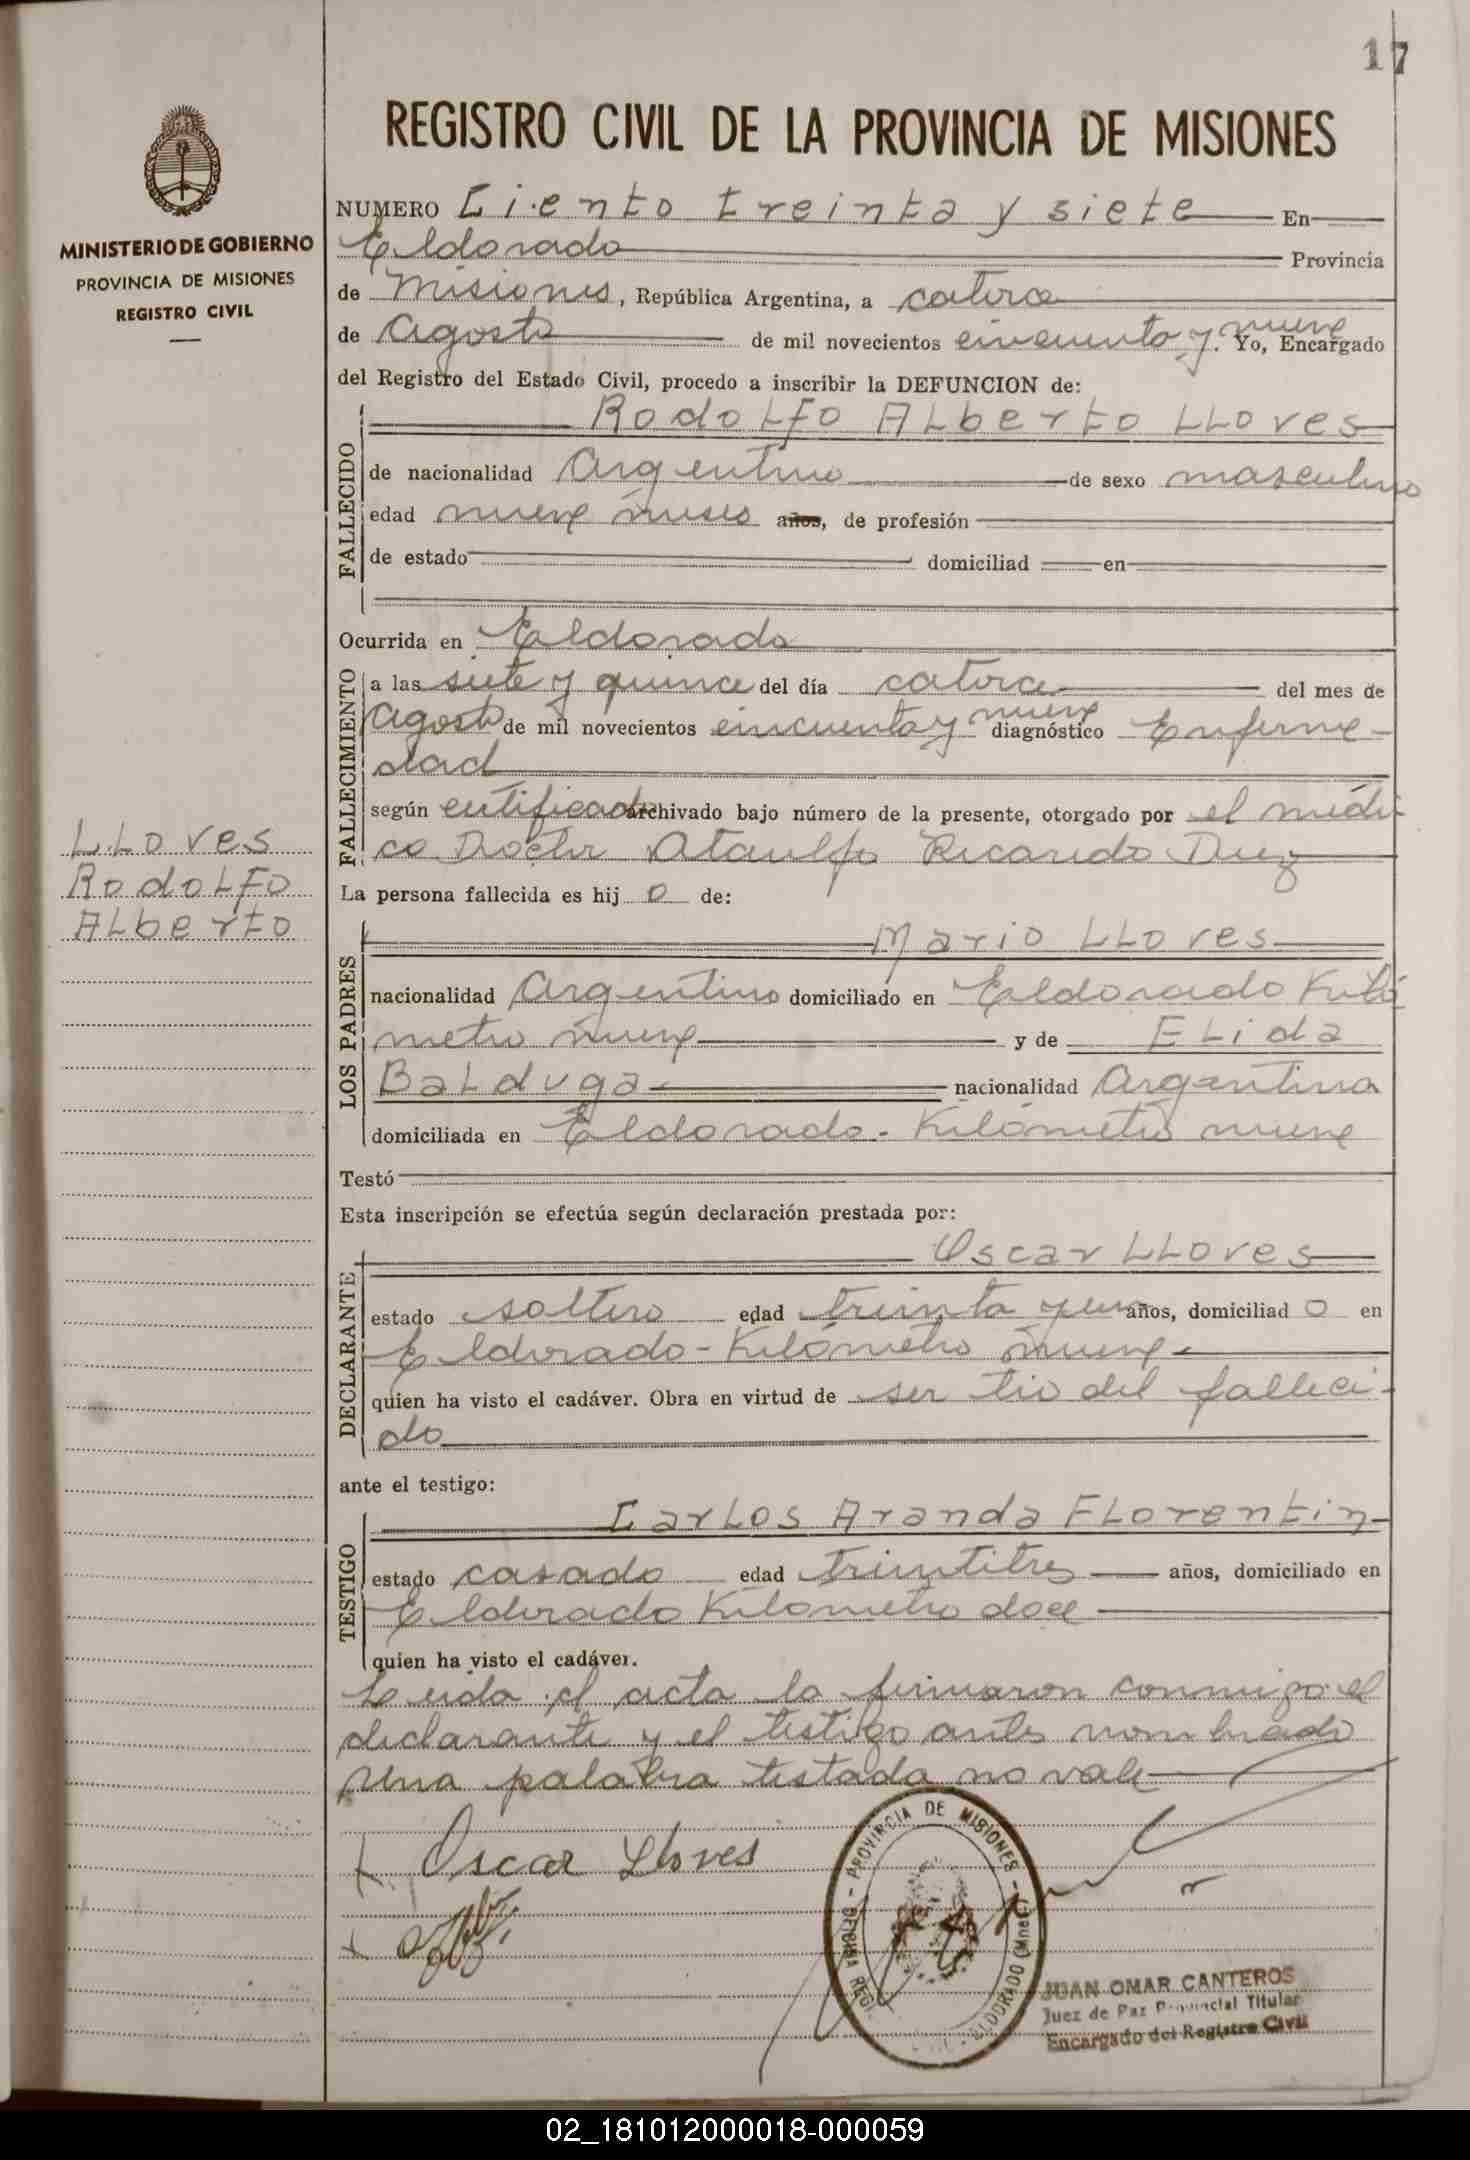 17
REGISTRO CIVIL DE LA PROVINCIA DE MISIONES
MINISTERIO DE GOBIERNO
PROVINCIA DE MISIONES
REGISTRO CIVIL
NUMERO Ciento treinta y siete En
Eldorado Provincia
de Misiones, República Argentina, a catorce
de Agosto de mil novecientos cincuenta y nueve. Yo, Encargado
del Registro del Estado Civil, procedo a inscribir la DEFUNCION de:
FALLECIDO
Rodolfo Alberto LLoves
de nacionalidad Argentino de sexo masculino
edad nueve meses años, de profesión
de estado domiciliad en
Ocurrida en Eldorado
FALLECIMIENTO
a las siete y quince del día catorce del mes de
Agosto de mil novecientos cincuenta y nueve diagnóstico Enferme-
dad
según certificado archivado bajo número de la presente, otorgado por el médi-
co Doctor Ataulfo Ricardo
LLoves
Rodolfo
Alberto
La persona fallecida es hij o de:
LOS PADRES
Mario LLoves
nacionalidad Argentino domiciliado en Eldorado Kiló
metro nueve y de Elida
Balduga nacionalidad Argentina
domiciliada en Eldorado - Kilómetro nueve
Testó
Esta inscripción se efectúa según declaración prestada por:
DECLARANTE
Oscar LLoves
estado soltero edad treinta y un años, domiciliad o en
Eldorado - Kilómetro nueve -
quien ha visto el cadáver. Obra en virtud de ser tio del falleci-
do
ante el testigo:
TESTIGO
Carlos Aranda Florentin
estado casado edad treintitres años, domiciliado en
Eldorado Kilómetro doce
quien ha visto el cadáver.
Leida el acta la firmaron conmigo el
declarante y el testigo antes nombrado
una palabra testada no vale
Oscar Lloves
PROVINCIA DE MISIONES - ELDORADO (Mnes.)
JUAN OMAR CANTEROS
Juez de Paz Provincial Titular
Encargado del Registro Civil
02_181012000018-000059